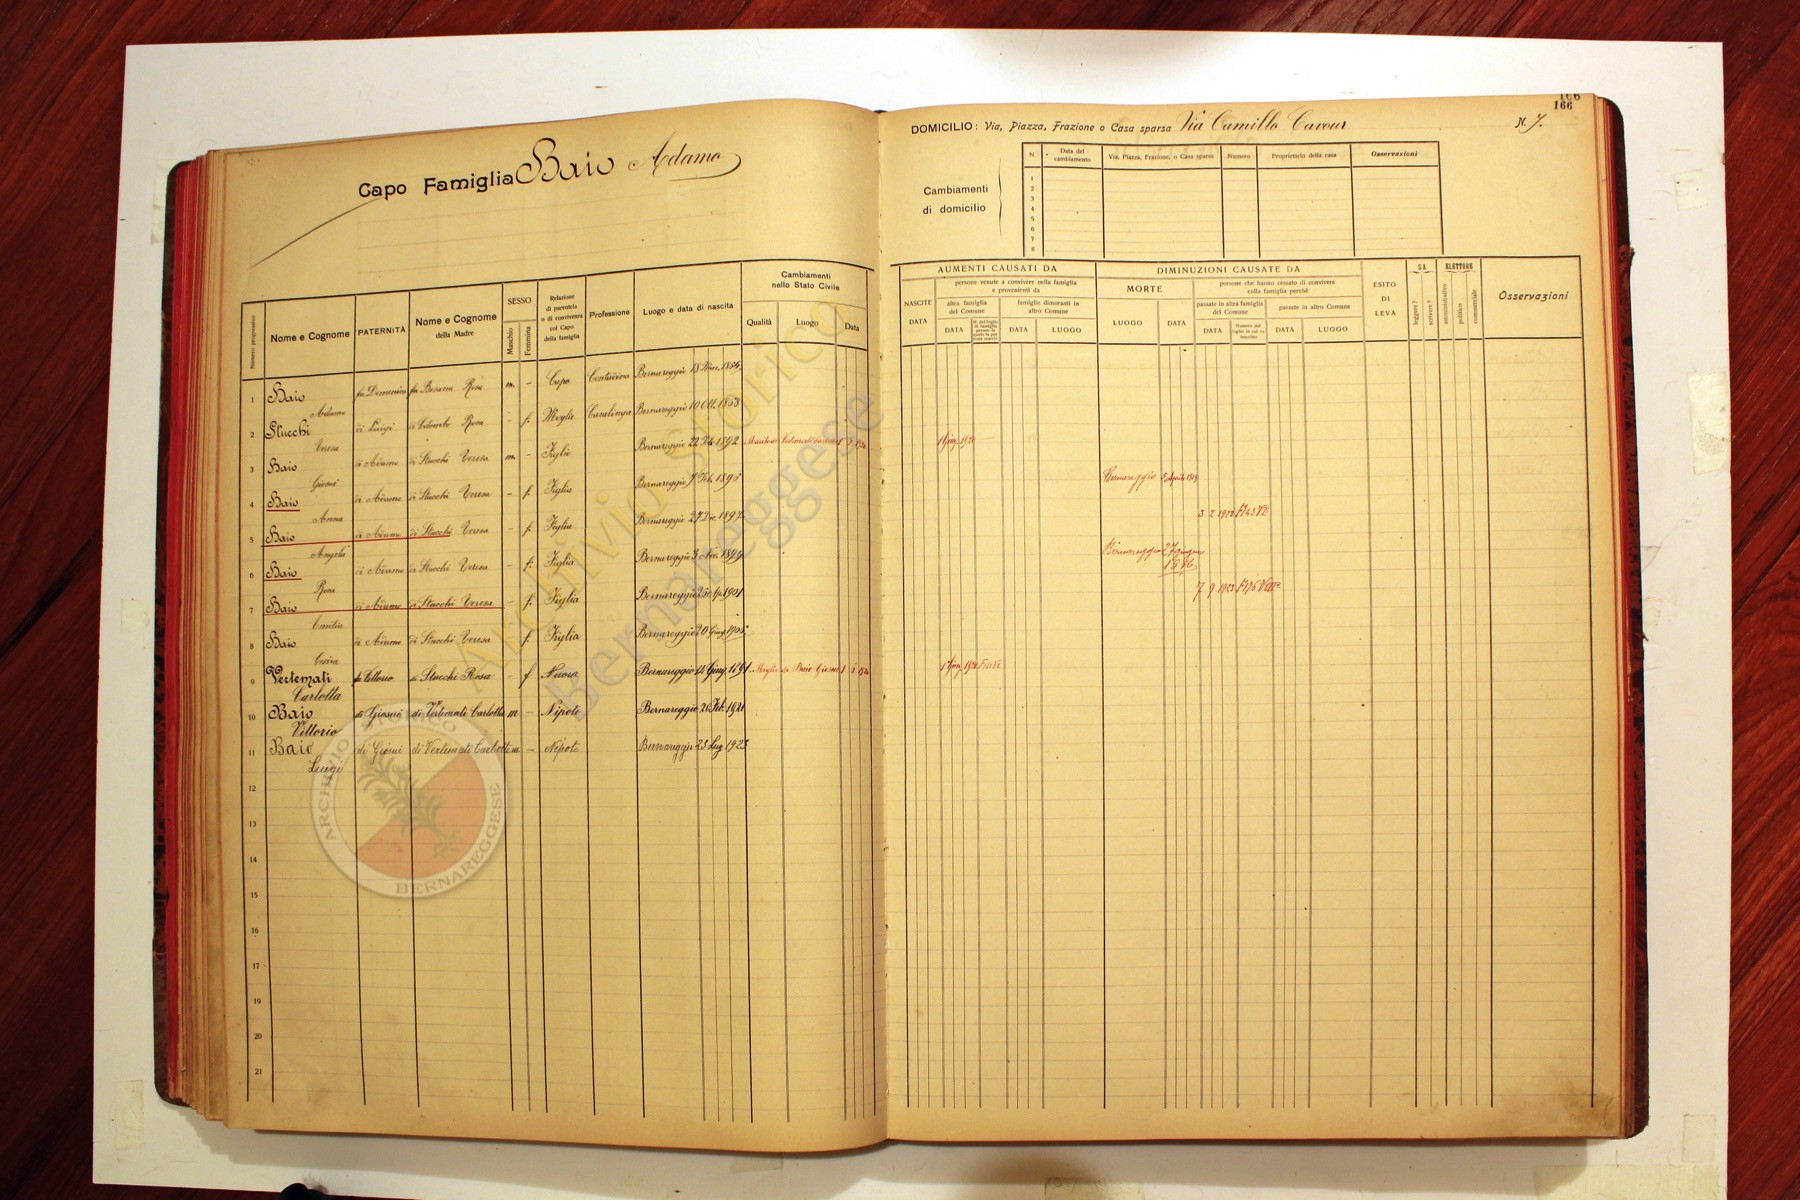 Capo Famiglia Baio Adamo
Numero progressivo
Nome e Cognome
PATERNITÀ
Nome e Cognome
della Madre
SESSO
Maschio
Femmina
Relazione
di parentela
o di convivenza
col Capo
della famiglia
Professione
Luogo e data di nascita
Cambiamenti
nello Stato Civile
Qualità
Luogo
Data
1 Baio Adamo fu Domenico fu Besana Rosa m. – Capo Contadino Bernareggio 18 1854
2 Stucchi Teresa di Luigi di Colombo Rosa – f. Moglie Casalinga Bernareggio 10 Ott. 1858
3 Baio Giosuè di Adamo di Stucchi Teresa m. – Figlio Bernareggio 22 Feb 1892 Vertemati Carlotta
4 Baio Anna di Adamo di Stucchi Teresa – f. Figlia Bernareggio 7 Feb. 1895
5 Baio Angela di Adamo di Stucchi Teresa – f. Figlia Bernareggio 27 Dic 1897
6 Baio Rosa di Adamo di Stucchi Teresa – f. Figlia Bernareggio 3 Nov. 1899
7 Baio Emilia di Adamo di Stucchi Teresa – f. Figlia Bernareggio 1901
8 Baio Cesira di Adamo di Stucchi Teresa f. Figlia Bernareggio 20 Giug. 1905
9 Vertemati Carlotta fu Vittorio di Stucchi Rosa – f Nuora Bernareggio Giug. 1891 Moglie di Baio Giosuè
10 Baio Vittorio di Giosuè di Vertemati Carlotta m – Nipote Bernareggio 26 Feb. 1921
11 Baio Luigi di Giosuè di Vertemati Carlotta m – Nipote Bernareggio 23 Lug 1923
12
13
14
15
16
17
19
20
21
ARCHIVIO STORICO
BERNAREGGESE
Archivio Storico
Bernareggese
166
DOMICILIO: Via, Piazza, Frazione o Casa sparsa Via Camillo Cavour
N. 7.
Cambiamenti
di domicilio
N.
Data del
cambiamento
Via, Piazza, Frazione, o Casa sparsa
Numero
Proprietario della casa
Osservazioni
1
2
3
4
5
6
7
8
AUMENTI CAUSATI DA
NASCITE
DATA
persone venute a convivere nella famiglia
e provenienti da
altra famiglia
del Comune
DATA
famiglie dimoranti in
altro Comune
DATA
LUOGO
DIMINUZIONI CAUSATE DA
MORTE
LUOGO
DATA
persone che hanno cessato di convivere
colla famiglia perchè
passate in altra famiglia
del Comune
DATA
passate in altro Comune
DATA
LUOGO
ESITO
DI
LEVA
SA
leggere?
scrivere?
ELETTORE
amministrativo
politico
commerciale
Osservazioni
Bernareggio 5 Aprile 1919
3 2 1923
Bernareggio 27 giugno
7 9 1923